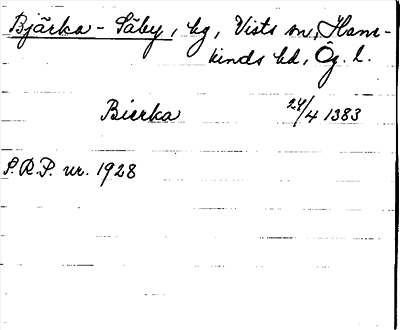 Bjärka - Säby, hg, Vists sn, Ham-
kinds hd, Ög. l.
Bierka 24/4 1383
S.R.P. nr. 1928